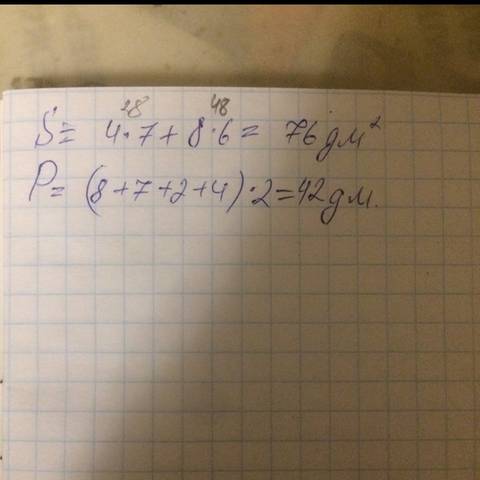 28 48
S = 4·7+8·6 = 76 дм²
P = (8+7+2+4)·2=42дм.